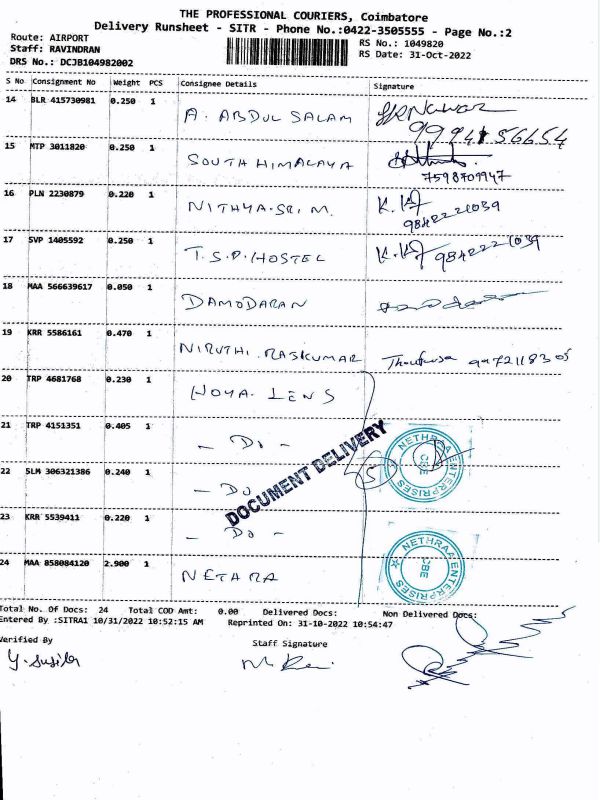 THE PROFESSIONAL COURIERS, Coimbatore
Delivery Runsheet - SITR - Phone No.:0422-3505555 - Page No.:2
Route: AIRPORT
RS No.: 1049820
Staff: RAVINDRAN
RS Date: 31-Oct-2022
DRS No.: DCJB104982002
S No Consignment No Weight PCS Consignee Details Signature
14 BLR 415730981 0.250 1 A. ABDUL SALAM
15 MTP 3011820 0.250 1 SOUTH HIMALAYA
7598709947
16 PLN 2230879 0.220 1 NITHYA.SRI.M.
9842221039
17 SVP 1405592 0.250 1 T.S.P. HOSTEL 9842221039
18 MAA 566639617 0.050 1 DAMODARAN
19 KRR 5586161 0.470 1 NIRUTHI.RAJKUMAR
20 TRP 4681768 0.230 1 HOYA LENS
21 TRP 4151351 0.405 1 - DO -
22 SLM 306321386 0.240 1 - DO
23 KRR 5539411 0.220 1 - DO -
24 MAA 858084120 2.900 1 NETHRA
DOCUMENT DELIVERY
5
NETHRAA ENTERPRISES
CBE
NETHRAA ENTERPRISES
CBE
Total No. Of Docs: 24 Total COD Amt: 0.00 Delivered Docs: Non Delivered Docs:
Entered By :SITRA1 10/31/2022 10:52:15 AM Reprinted On: 31-10-2022 10:54:47
Verified By Staff Signature